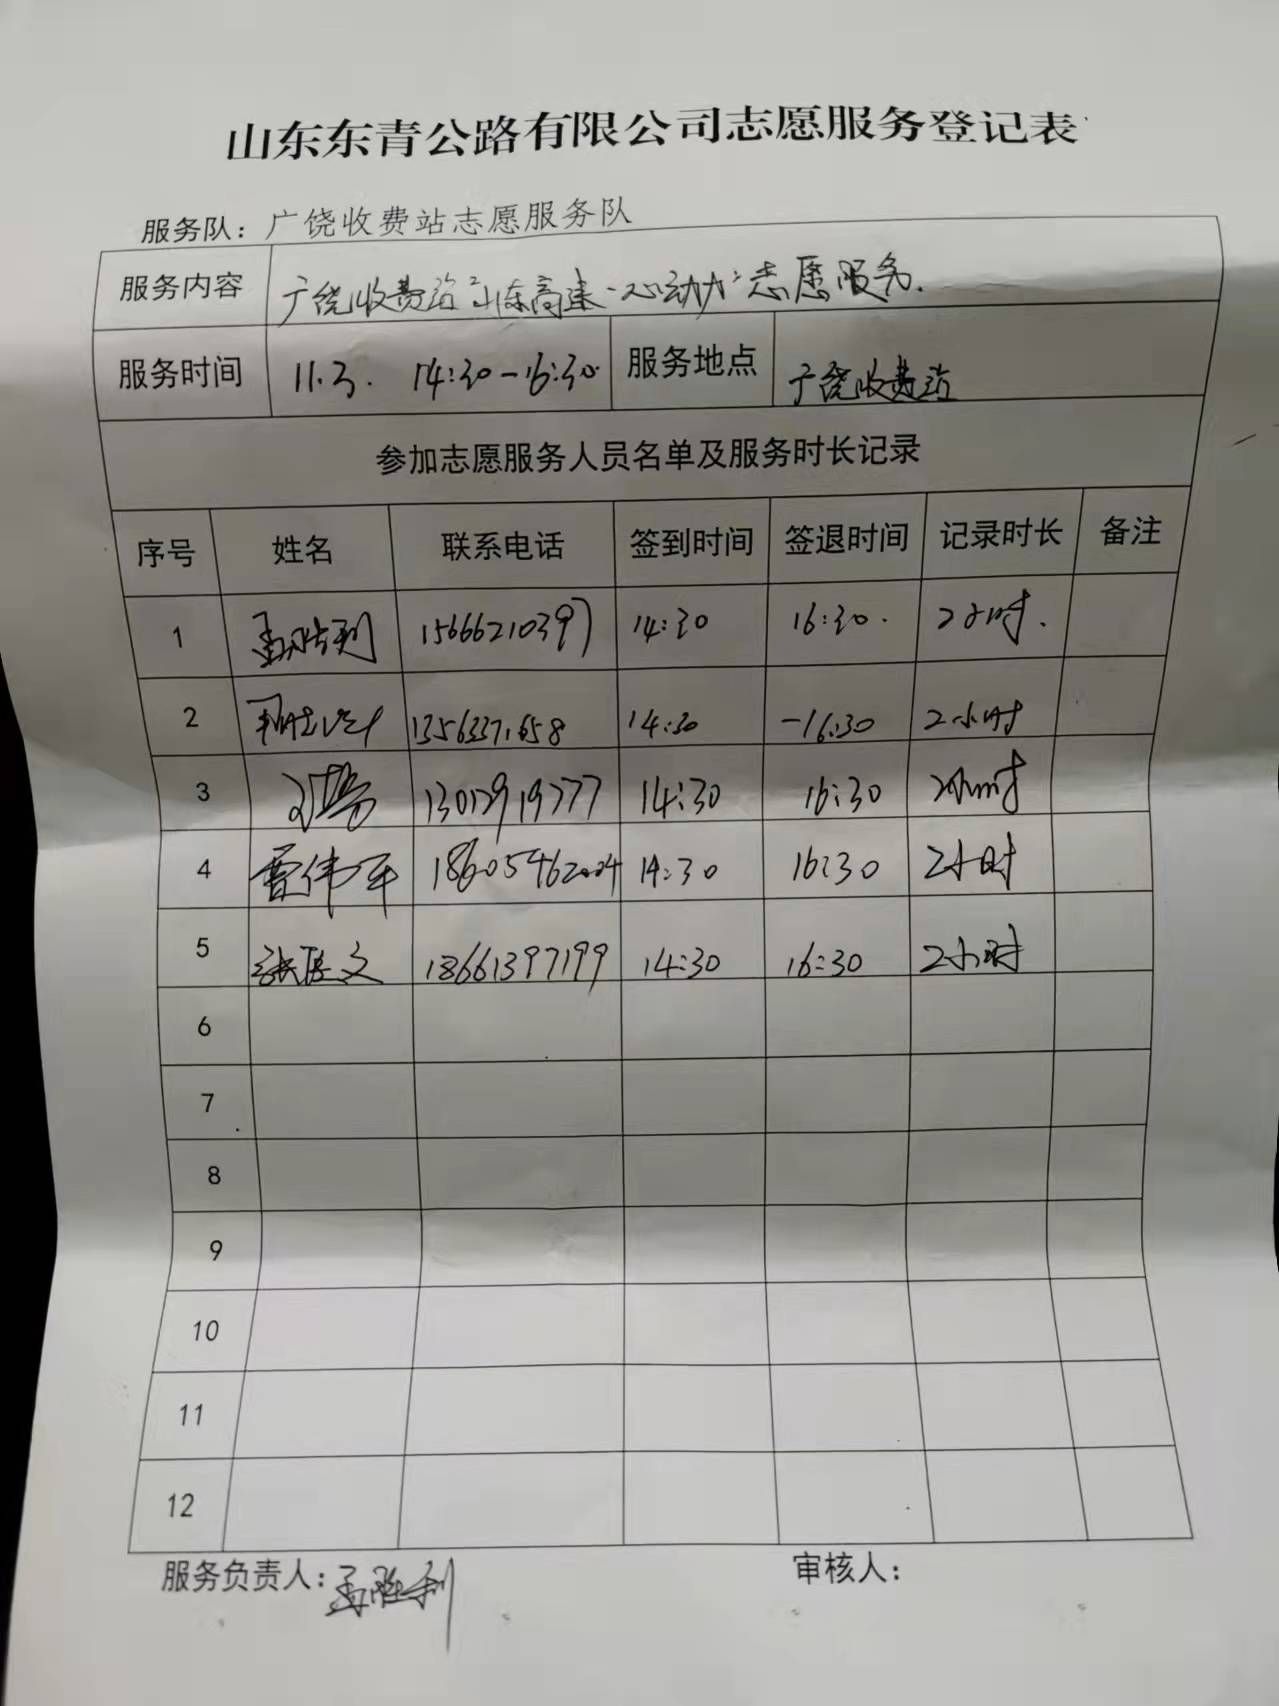 山东东青公路有限公司志愿服务登记表
服务队：广饶收费站志愿服务队
服务内容 广饶收费站山东高速“心动力”志愿服务.
服务时间 11.3. 14:30-16:30. 服务地点 广饶收费站
参加志愿服务人员名单及服务时长记录
序号 姓名 联系电话 签到时间 签退时间 记录时长 备注
1 孟胜利 15666210397 14:30 16:30. 2小时.
2 14:30 -16:30 2小时
3 14:30 16:30 2小时
4 贾伟军 18605462004 14:30 16:30 2小时
5 18661397199 14:30 16:30 2小时
6
7
8
9
10
11
12
服务负责人：孟胜利 审核人：